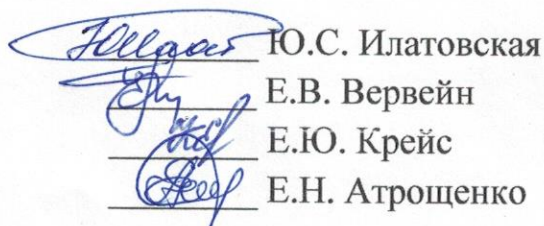 Ю.С. Илатовская
Е.В. Вервейн
Е.Ю. Крейс
Е.Н. Атрощенко